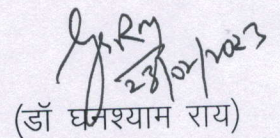 23/02/2023
(डॉ घनश्याम राय)